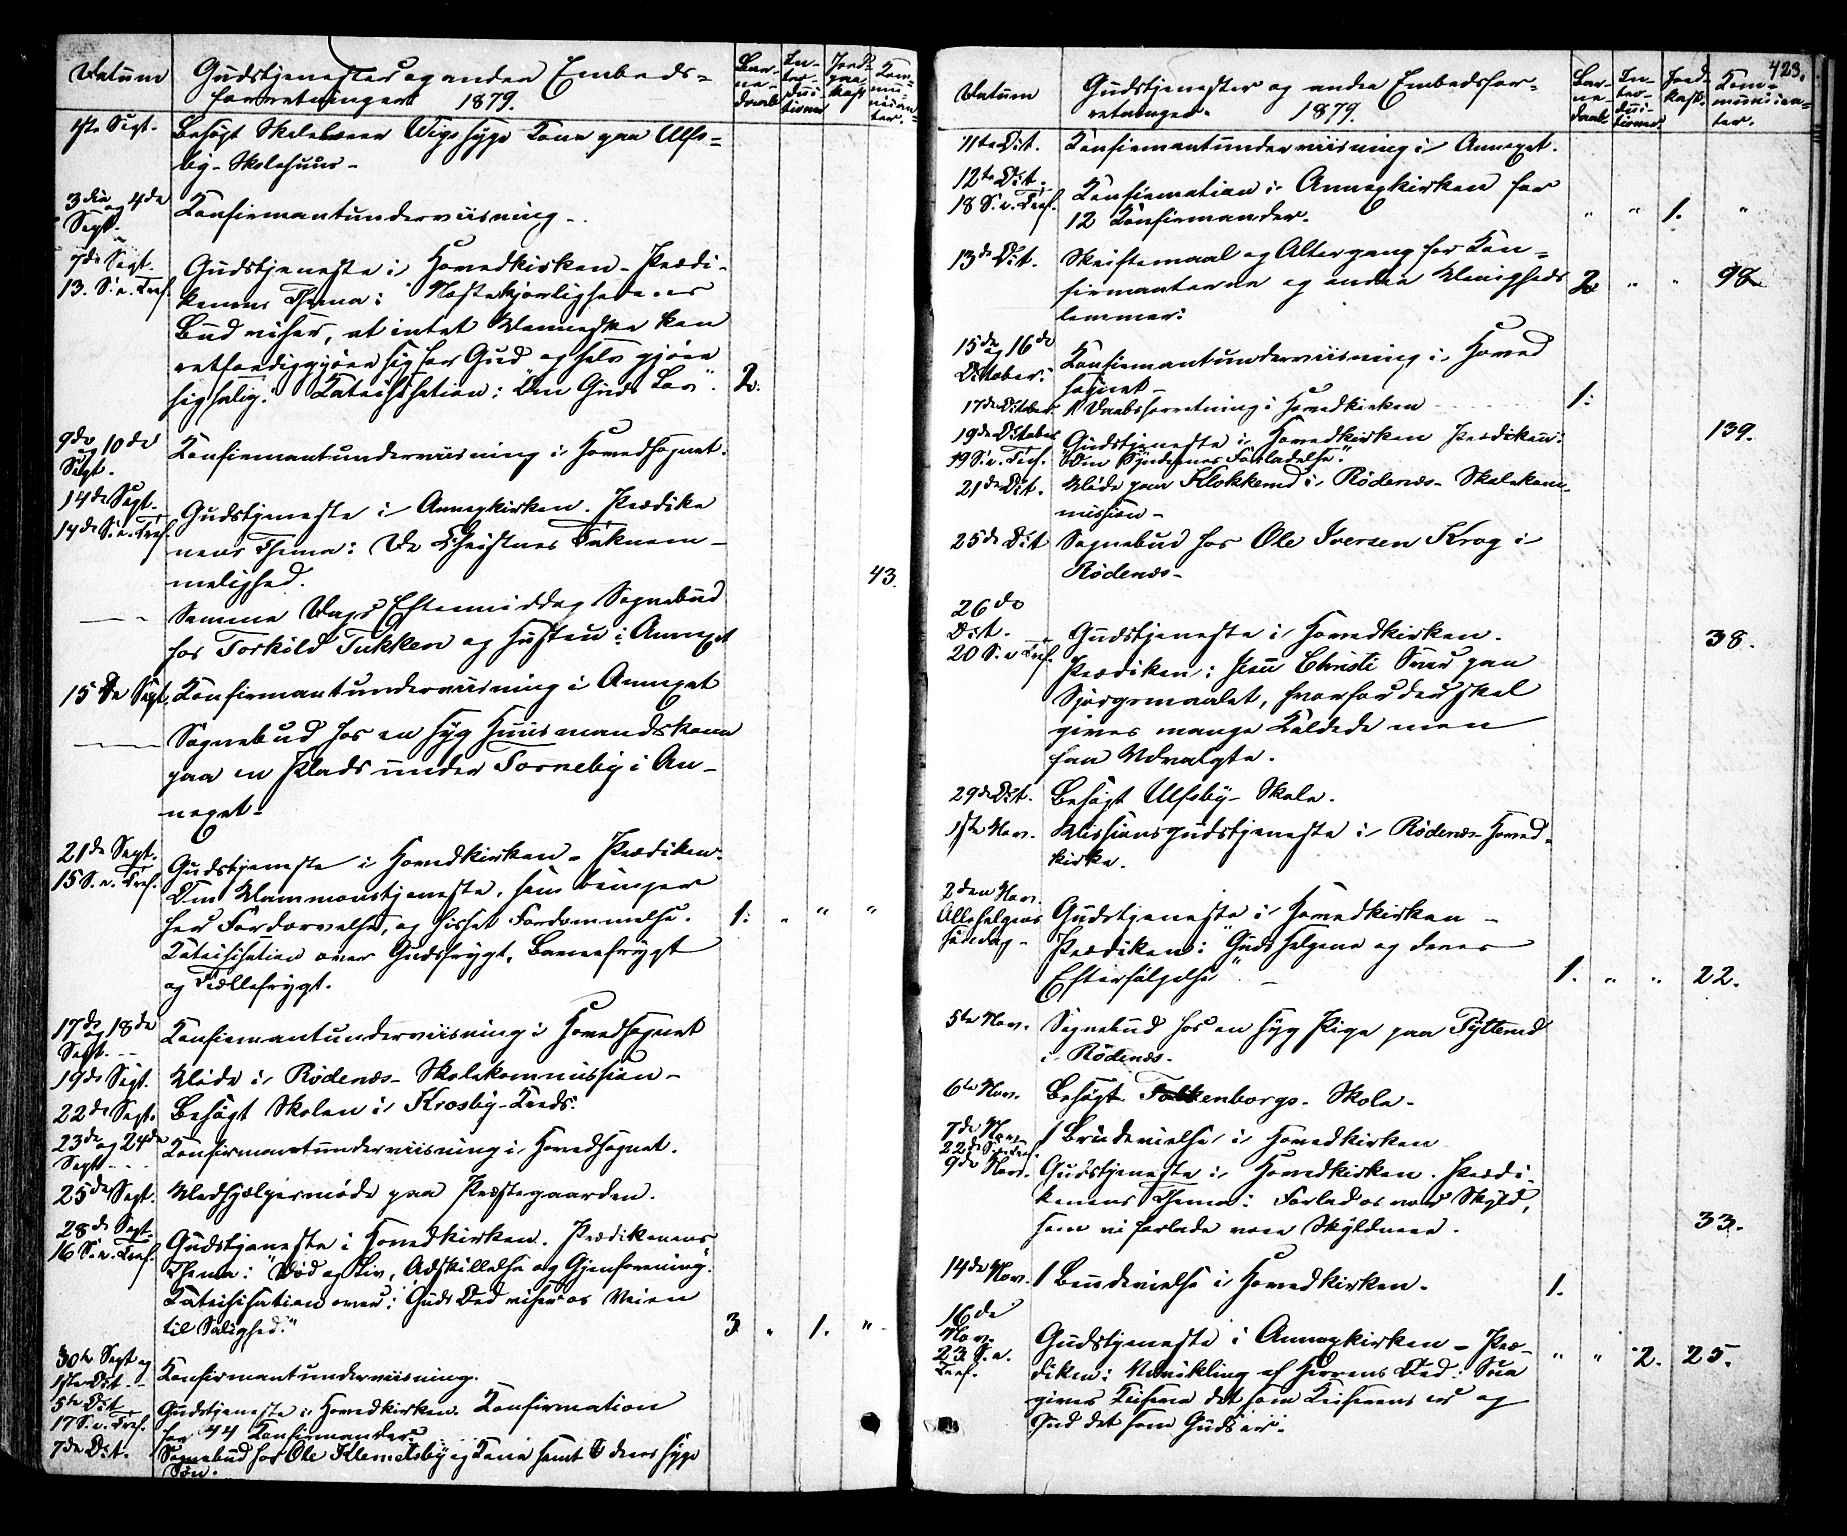 Datum
Gudstjenester og andre Embeds-
forretninger 1879.
Bar-
ne-
daab
In-
tro-
duc-
tioner
Jord-
paa-
kast
Kom-
mu-
nican-
ter.
1ste Sept.
Besøgt Skolelærer Wigs syge Kone paa Ulfs-
by-Skolehuus-
3die og 4de
Sept.
Konfirmantunderviisning-
7de Sept.
13. S. e. Tref.
Gudstjeneste i Hovedkirken- Prædi-
kenens Thema: Næstekjærlighedens
Bud viser, at intet Menneske kan
retfærdiggjøre sig for Gud og selv gjøre
sig salig. Katechisation: "Om Guds Lov". 2.
9de og 10de
Sept.
Konfirmantunderviisning i Hovedsognet.
14de Sept.
14de S. e. Tref.
Gudstjeneste i Annexkirken. Prædike
nens Thema: De Christnes Taknem-
melighed. 43.
Samme Dags Eftermiddag Sognebud
hos Torkild Tukken og Hustru i Annexet
15de Sept.
Konfirmantunderviisning i Annexet
Sognebud hos en syg Huusmandskone
paa en Plads under Torneby i An-
nexet-
21de Sept.
15 S. e. Tref.
Gudstjeneste i Hovedkirken- Prædiken.
Om Mammonstjeneste, som bringer
her Fordærvelse, og hisset Fordømmelse. 1. " " "
Katechisation over Gudsfrygt, Barnefrygt
og Trællefrygt.
17de og 18de
Sept.
Konfirmantunderviisning i Hovedsognet
19de Sept. Møde i Rødenæs-Skolekommission-
22de Sept. Besøgt Skolen i Krosby-Kreds.
23de og 24de
Sept.
Konfirmantunderviisning i Hovedsognet.
25de Sept. Medhjælpermøde paa Præstegaarden.
28de Sept.
16 S. e. Tref.
Gudstjeneste i Hovedkirken. Prædikenens
Thema: "Død og Liv, Adskillelse og Gjenforening".
Katechisation over: "Guds Ord viser os Veien
til Salighed." 3. " 1. "
30te Sept og
1ste Oct.
Konfirmantunderviisning.
5te Oct
17 S. e. Tref.
Gudstjeneste i Hovedkirken. Konfirmation
for 44 Konfirmander.
7de Oct. Sognebud hos Ole Klemetsby og Kone samt deres syge
Søn.
423.
Datum
Gudstjenester og andre Embedsfor-
retninger. 1879.
Bar-
ne
daab
In-
tro-
duc-
tioner
Jord-
kast.
Kom-
munican-
ter.
11te Oct. Konfirmantunderviisning i Annexet.
12te Oct.
18 S. e. Tref.
Konfirmation i Annexkirken for
12 Konfirmander. " " 1. "
13de Oct. Skriftemaal og Altergang for Kon-
firmanterne og andre Menigheds 2. " " 98
lemmer.
15de og 16de
October.
Konfirmantunderviisning i Hoved
sognet-
17de October 1 Daabsforretning i Hovedkirken 1.
19de October
19 S. e. Tref.
Gudstjeneste i Hovedkirken Prædiken: 139.
"Om Syndernes Forladelse."
21de Oct. Møde paa Klokkerud i Rødenæs-Skolekom-
mission-
25de Oct Sognebud hos Ole Iversen Krog i
Rødenæs-
26de
Oct.
20 S. e Tref.
Gudstjeneste i Hovedkirken. 38.
Prædiken: Jesu Christi Svar paa
Spørgsmaalet, hvorfor der skal
gives mange Kaldede men
faa Udvalgte.
29de Oct. Besøgt Ulfsby-Skole.
1ste Nov. Missionsgudstjeneste i Rødenæs-Hoved-
kirke.
2den Nov.
Allehelgens
Søndag-
Gudstjeneste i Hovedkirken-
Prædiken: "Guds helgene og deres
Efterfølgelse"- 1. " " 22.
5te Nov. Sognebud hos en syg Pige paa Tytterud
i Rødenæs.
6te Nov. Besøgt Folkenborgs-Skole.
7de Nov. 1 Brudevielse i Hovedkirken
22de S. e. Tref.
9de Nov.
Gudstjeneste i Hovedkirken. Prædi-
kenens Thema: Forlad os vor Skyld,
som vi forlade vore Skyldnere. 33.
14de Nov. 1 Brudevielse i Hovedkirken. 1.
16de
Nov.
23 S. e.
Tref.
Gudstjeneste i Annexkirken- Præ- " " 2. 25.
diken: Udvikling af Herrens Ord: "Saa
giver Keiseren det som Keiserens er og
Gud det som Guds er".